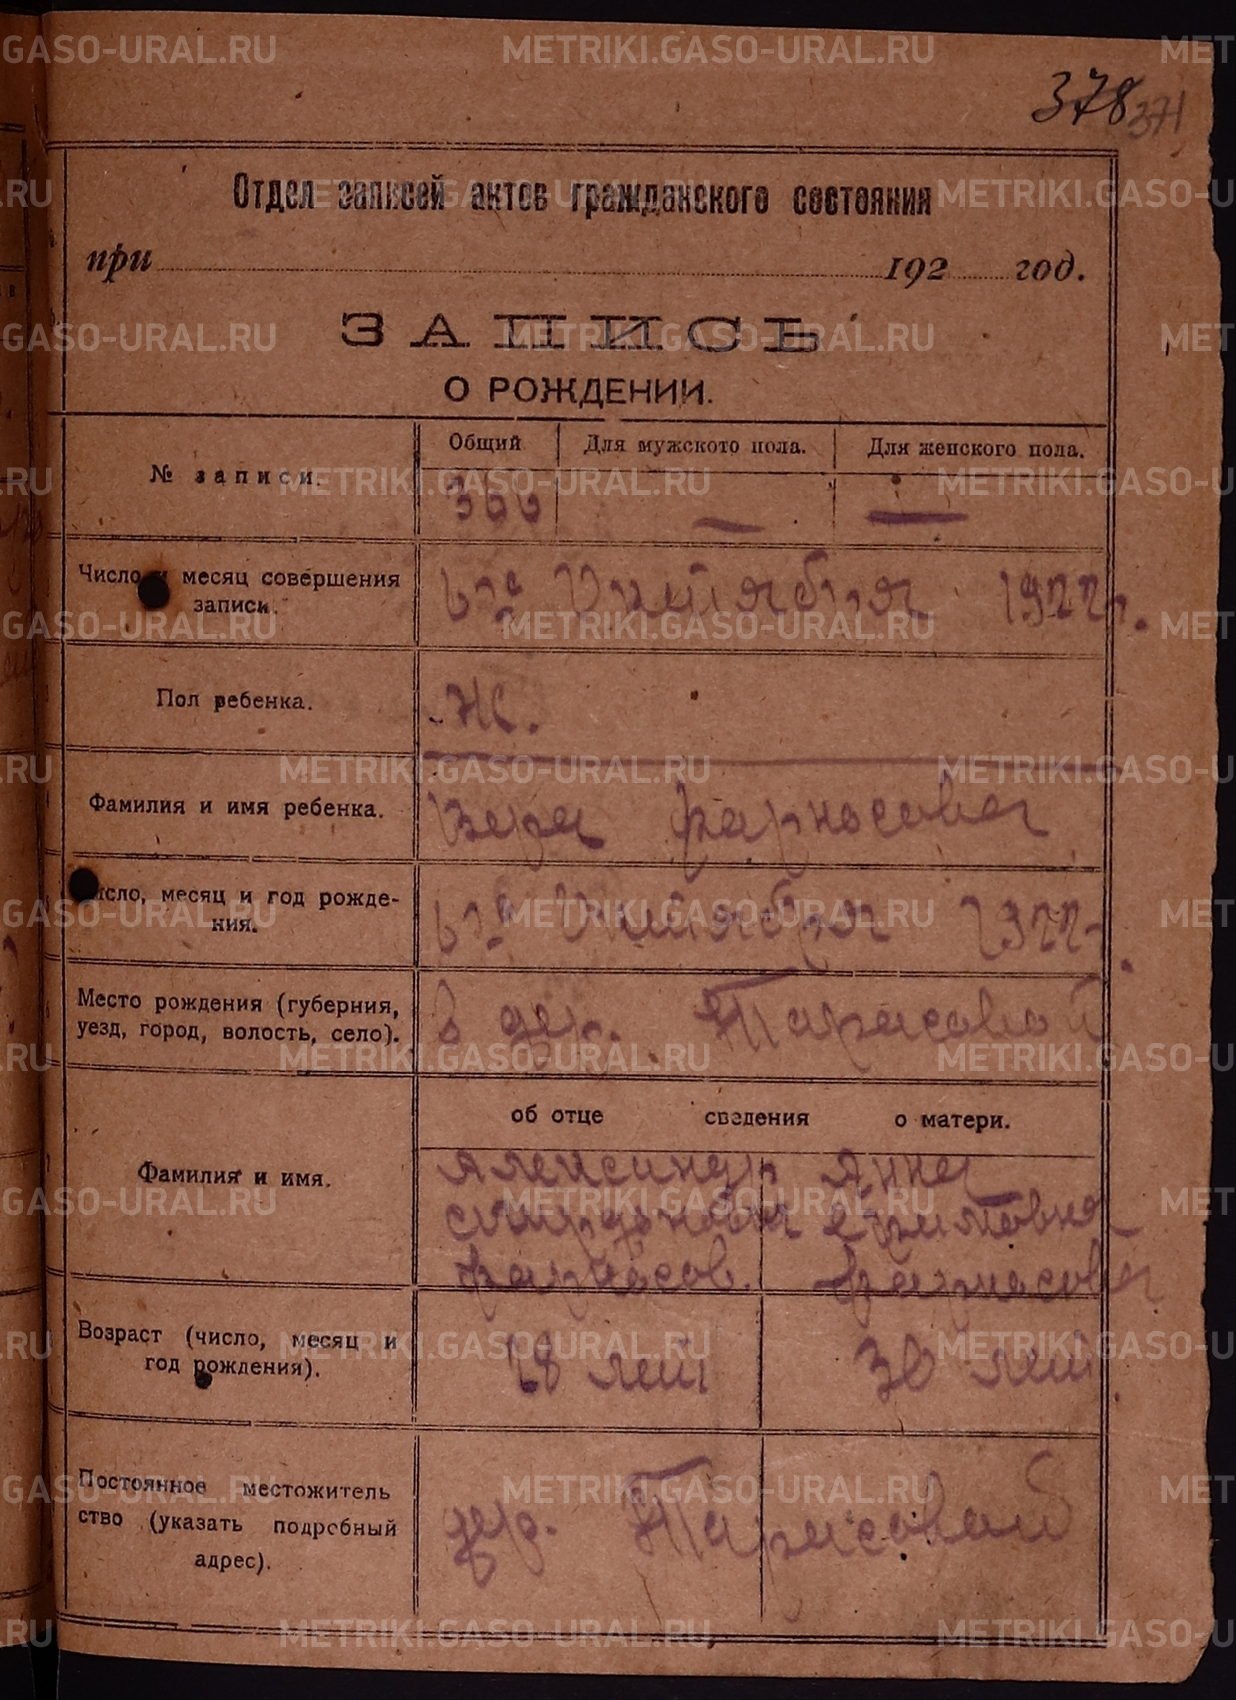 378 371
Отдел записей актов гражданского состояния
при 192 год.
ЗАПИСЬ
О РОЖДЕНИИ.
№ записи. Общий Для мужского пола. Для женского пола.
366 — —
Число и месяц совершения
записи.
Октября 1922 г.
Пол ребенка. Ж.
Фамилия и имя ребенка. Вера
Число, месяц и год рожде-
ния.
Октября 1922
Место рождения (губерния,
уезд, город, волость, село).
в дер. Тарасовой
об отце сведения о матери.
Фамилия и имя.
Александр Анна
Возраст (число, месяц и
год рождения).
28 лет 30 лет
Постоянное местожитель
ство (указать подробный
адрес).
дер. Тарасовой
METRIKI.GASO-URAL.RU